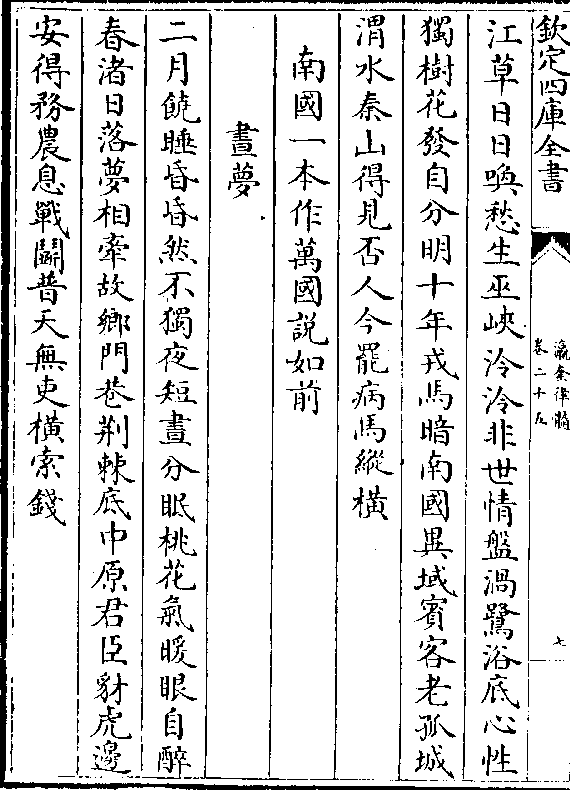 欽定四庫全書
瀛奎律髓
卷二十五
七
江草日日喚愁生巫峽泠泠非世情盤渦鷺浴底心性
獨樹花發自分明十年戎馬暗南國異域賓客老孤城
渭水秦山得見否人今罷病馬縱橫
南國一本作萬國説如前
晝夢
二月饒睡昏昏然不獨夜短晝分眠桃花氣暖眼自醉
春渚日落夢相牽故鄉門巷荆棘底中原君臣豺虎邊
安得務農息戰鬭普天無吏横索錢